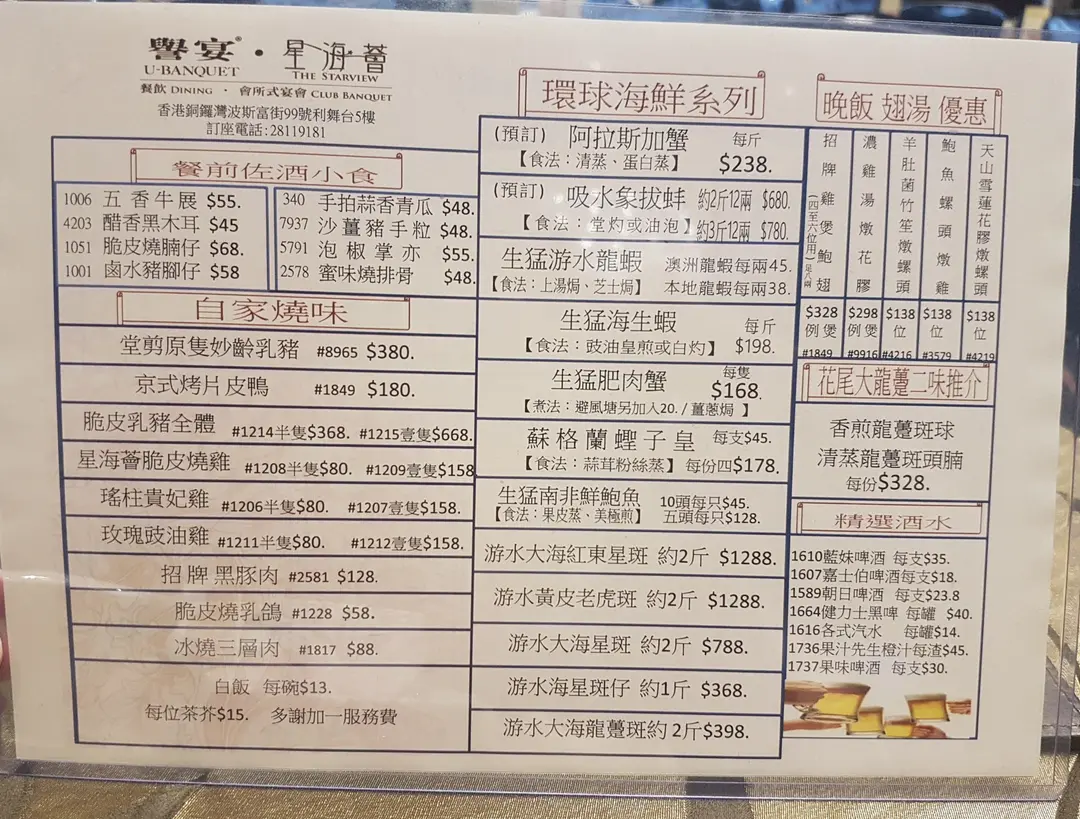 譽宴® · 星海薈
U-BANQUET THE STARVIEW
餐飲 DINING · 會所式宴會 CLUB BANQUET
香港銅鑼灣波斯富街99號利舞台5樓
訂座電話:28119181
餐前佐酒小食
1006 五香牛展 $55.
4203 醋香黑木耳 $45
1051 脆皮燒腩仔 $68.
1001 鹵水豬腳仔 $58
340 手拍蒜香青瓜 $48.
7937 沙薑豬手粒 $48.
5791 泡椒掌亦 $55.
2578 蜜味燒排骨 $48.
自家燒味
堂剪原隻妙齡乳豬 #8965 $380.
京式烤片皮鴨 #1849 $180.
脆皮乳豬全體 #1214半隻$368. #1215壹隻$668.
星海薈脆皮燒雞 #1208半隻$80. #1209壹隻$158
瑤柱貴妃雞 #1206半隻$80. #1207壹隻$158.
玫瑰豉油雞 #1211半隻$80. #1212壹隻$158.
招牌黑豚肉 #2581 $128.
脆皮燒乳鴿 #1228 $58.
冰燒三層肉 #1817 $88.
白飯 每碗$13.
每位茶芥$15. 多謝加一服務費
環球海鮮系列
(預訂) 阿拉斯加蟹 每斤
【食法：清蒸、蛋白蒸】 $238.
(預訂) 吸水象拔蚌 約2斤12兩 $680.
【食法：堂灼或油泡】 約3斤12兩 $780.
生猛游水龍蝦 澳洲龍蝦每兩45.
【食法：上湯焗、芝士焗】 本地龍蝦每兩38.
生猛海生蝦 每斤
【食法：豉油皇煎或白灼】 $198.
生猛肥肉蟹 每隻
$168.
【煮法：避風塘另加入20. / 薑蔥焗 】
蘇格蘭蟶子皇 每支$45.
【食法：蒜茸粉絲蒸】 每份四$178.
生猛南非鮮鮑魚 10頭每只$45.
【食法：果皮蒸、美極煎】 五頭每只$128.
游水大海紅東星斑 約2斤 $1288.
游水黃皮老虎斑 約2斤 $1288.
游水大海星斑 約2斤 $788.
游水海星斑仔 約1斤 $368.
游水大海龍躉斑約 2斤$398.
晚飯 翅湯 優惠
招牌雞煲鮑翅
(四至六位用)足八兩
$328
例煲
#1849
濃雞湯燉花膠
$298
例煲
#9916
羊肚菌竹笙燉螺頭
$138
位
#4216
鮑魚螺頭燉雞
$138
位
#3579
天山雪蓮花膠燉螺頭
$138
位
#4219
花尾大龍躉二味推介
香煎龍躉斑球
清蒸龍躉斑頭腩
每份$328.
精選酒水
1610藍妹啤酒 每支$35.
1607嘉士伯啤酒每支$18.
1589朝日啤酒 每支$23.8
1664健力士黑啤 每罐 $40.
1616各式汽水 每罐$14.
1736果汁先生橙汁每渣$45.
1737果味啤酒 每支$30.